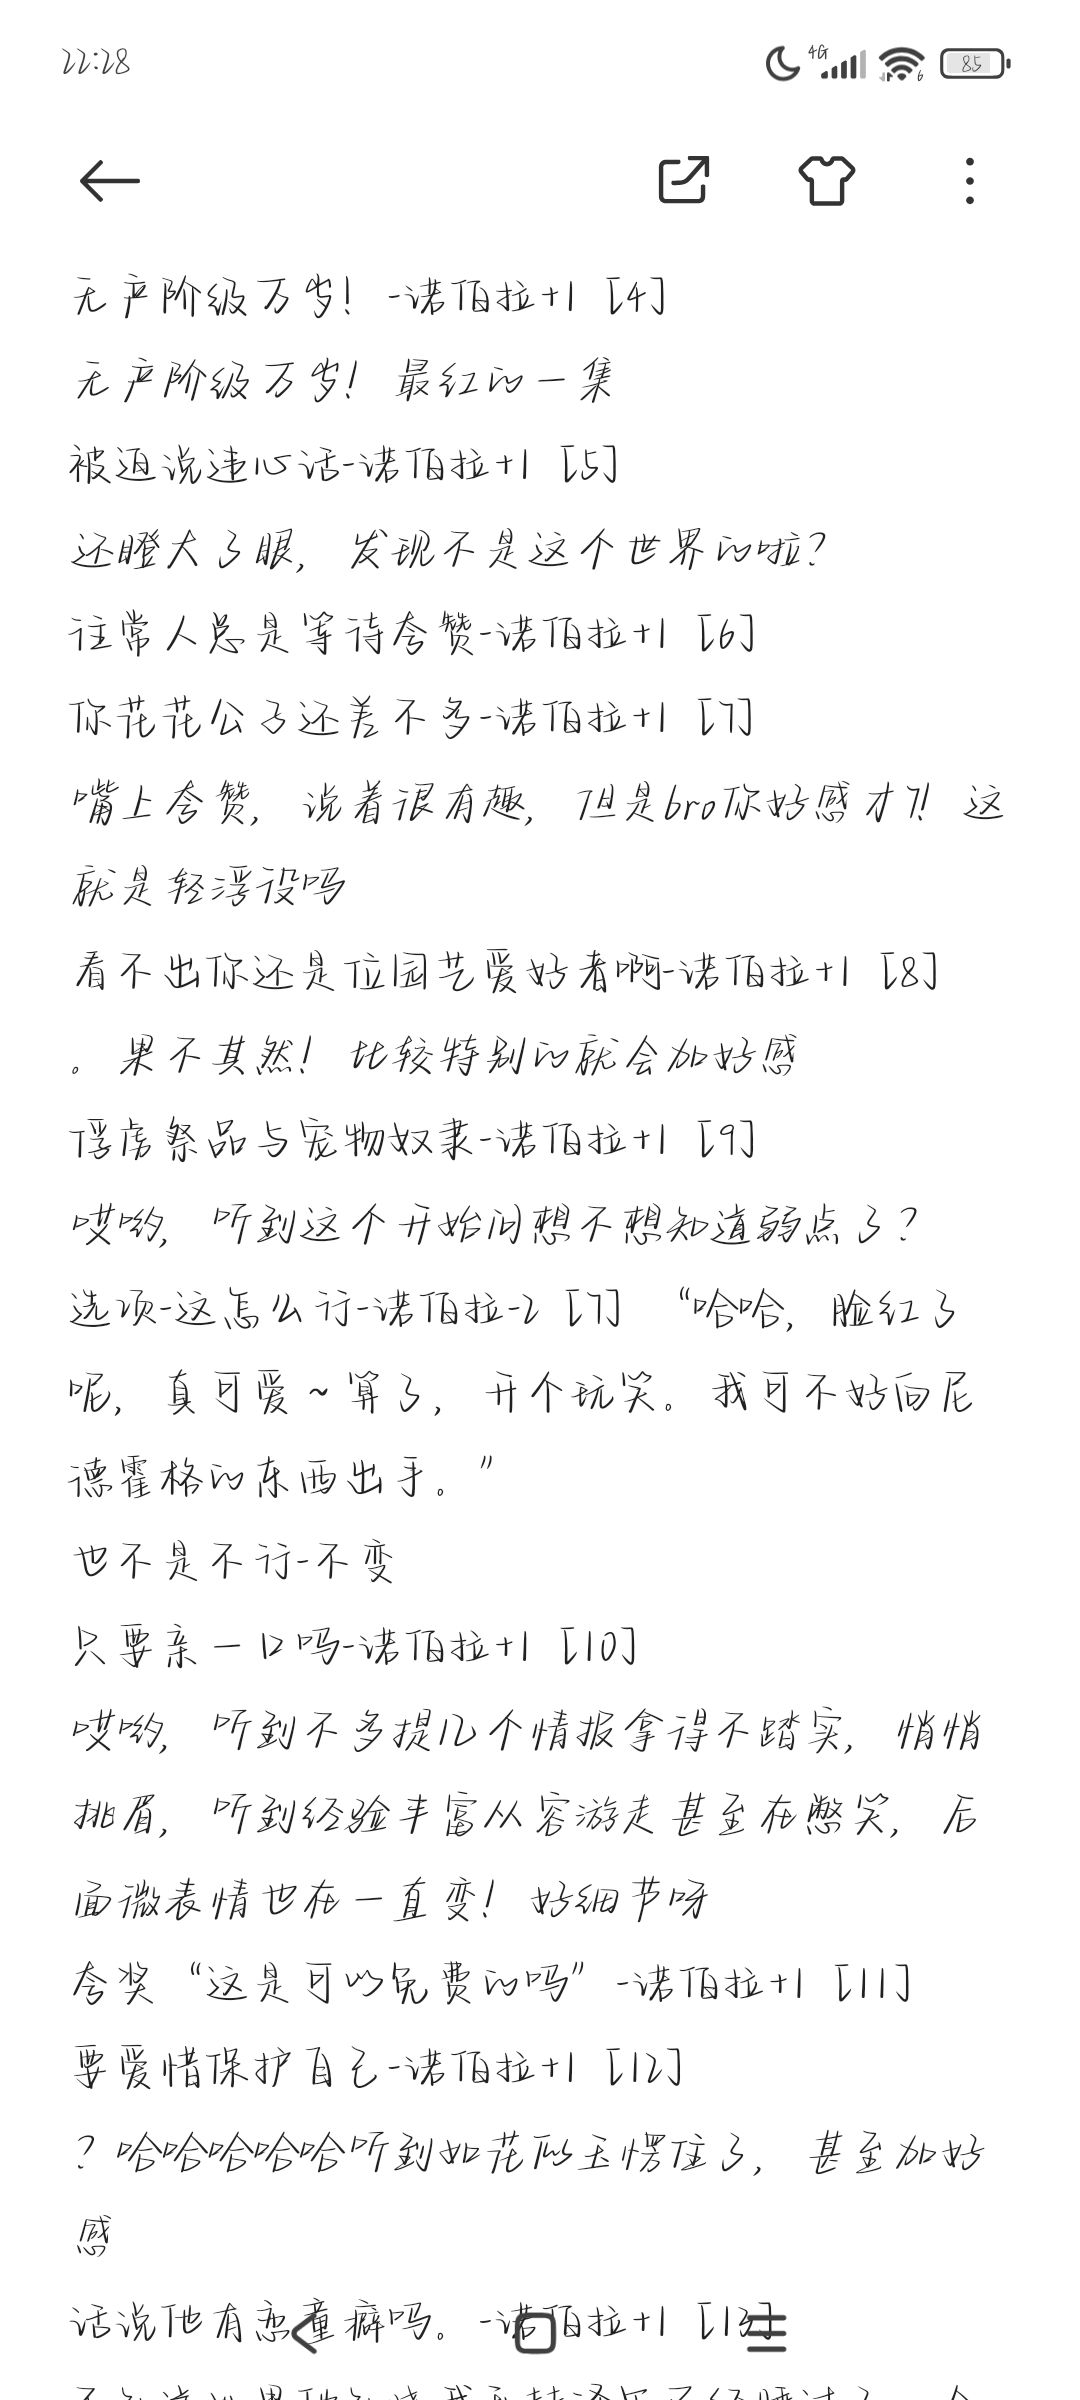 22:28
4G 6 85
无产阶级万岁！-诺伯拉+1 [4]
无产阶级万岁！最红的一集
被迫说违心话-诺伯拉+1 [5]
还瞪大了眼，发现不是这个世界的啦？
往常人总是等待夸赞-诺伯拉+1 [6]
你花花公子还差不多-诺伯拉+1 [7]
嘴上夸赞，说着很有趣，但是bro你好感才7！这
就是轻浮设吗
看不出你还是位园艺爱好者啊-诺伯拉+1 [8]
。果不其然！比较特别的就会加好感
俘虏祭品与宠物奴隶-诺伯拉+1 [9]
哎哟，听到这个开始问想不想知道弱点了？
选项-这怎么行-诺伯拉-2 [7] “哈哈，脸红了
呢，真可爱~算了，开个玩笑。我可不好向尼
德霍格的东西出手。”
也不是不行-不变
只要亲一口吗-诺伯拉+1 [10]
哎哟，听到不多提几个情报拿得不踏实，悄悄
挑眉，听到经验丰富从容游走甚至在憋笑，后
面微表情也在一直变！好细节呀
夸奖“这是可以免费的吗”-诺伯拉+1 [11]
要爱惜保护自己-诺伯拉+1 [12]
？哈哈哈哈哈听到如花似玉愣住了，甚至加好
感
话说他有恋童癖吗。-诺伯拉+1 [13]